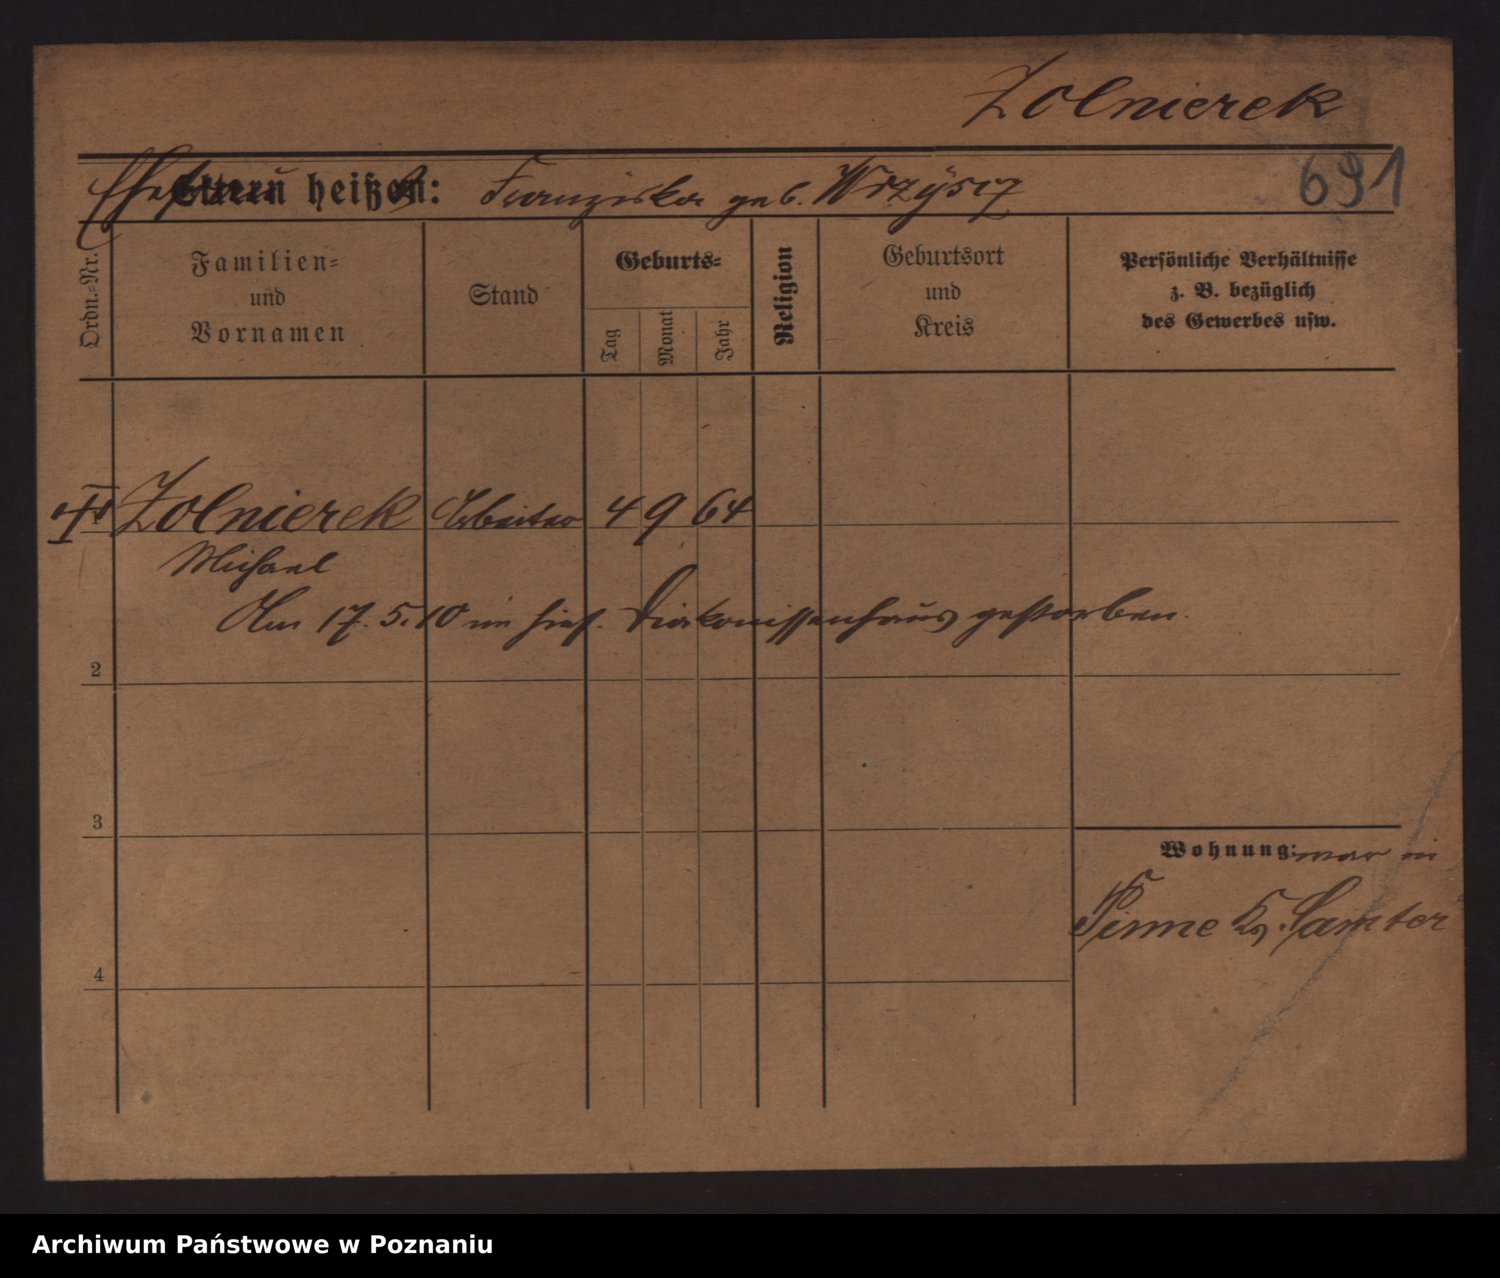 Zolnierek
Ehefrau heißt: Franziska geb. Wrzyscz
691
Ordn.-Nr.
Familien-
und
Vornamen
Stand
Geburts-
Tag
Monat
Jahr
Religion
Geburtsort
und
Kreis
Persönliche Verhältnisse
z. B. bezüglich
des Gewerbes usw.
Zolnierek Arbeiter 4 9 64
Michael
Am 17. 5. 10 im hies. Diakonissenhaus gestorben.
2
3
4
Wohnung: war in
Pinne Kr. Samter
Archiwum Państwowe w Poznaniu